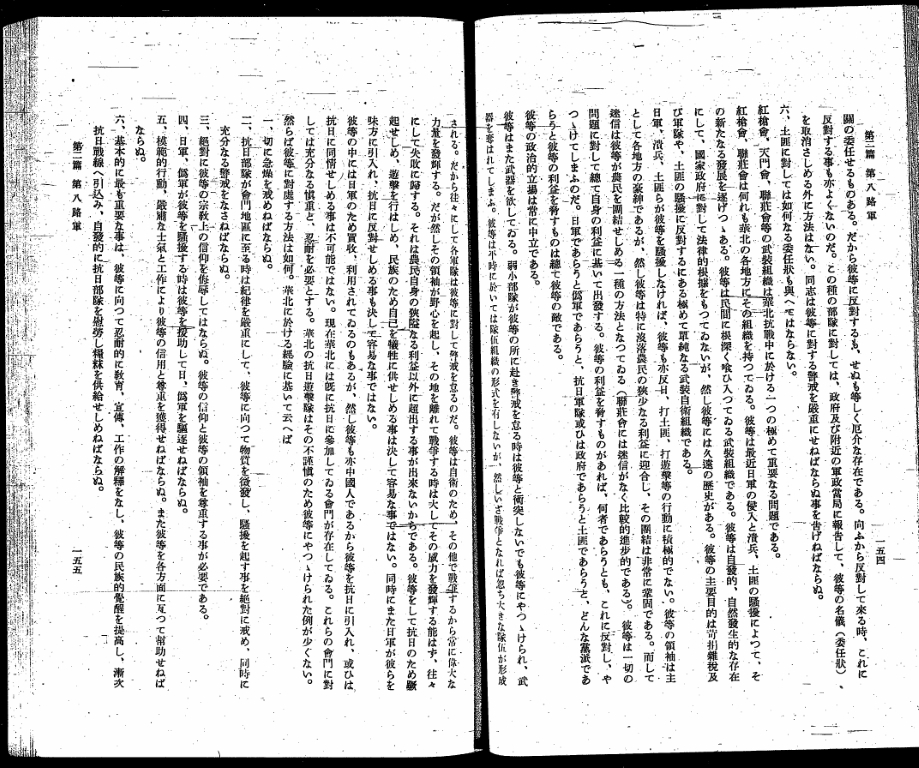 第二篇 第八路軍
一五四
關の委任せるものある。だから彼等に反對するも、せぬも等しく厄介な存在である。向ふから反對して來る時、これに
反對する事も亦よくないのだ。この種の部隊に對しては、政府及び附近の軍政當局に報告して、彼等の名儀(委任狀)、
を取消さしめる外に方法はない。同志は彼等に對する警戒を嚴重にせねばならぬ事を吿げねばならぬ。
六、土匪に對しては如何なる委任狀も與へてはならない。
紅槍會、天門會、聯莊會等の武裝組織は華北抗戰中に於ける一つの極めて重要なる問題である。
紅槍會、聯莊會は何れも華北の各地方にその組織を持つてゐる。彼等は最近日軍の侵入と潰兵、土匪の騷擾によつて、そ
の新たなる發展を遂げつゝある。彼等は民間に根深く喰ひ入つてゐる武裝組織である。彼等は自發的、自然發生的な存在
にして、國家政府に對して法律的根據をもつてゐないが、然し彼等には久遠の歷史がある。彼等の主要目的は苛捐雜稅及
び軍隊や、土匪の騷擾に反對するにある極めて單純なる武裝自衛組織である。
日軍、潰兵、土匪らが彼等を騷擾しなければ、彼等も亦反日、打土匪、打遊擊等の行動も積極的でない。彼等の領袖は主
として各地方の豪紳であるが、然し彼等は特に沒落農民の狹少なる利益に迎合し、その團結は非常に鞏固である。而して
迷信は彼等が農民を團結せしめる一種の方法となつてゐる(聯莊會には迷信がなく比較的進步的である)。彼等は一切の
問題に對して總て自身の利益に基いて出發する。彼等の利益を脅すものがあれば、何者であらうとも、これに反對し、や
つゝけてしまふのだ。日軍であらうと僞軍であらうと、抗日軍隊或ひは政府であらうと土匪であらうと、どんな黨派であ
らうと彼等の利益を脅すものは總て彼等の敵である。
彼等の政治的立場は常に中立である。
彼等はまた武器を欲してゐる。弱小部隊が彼等の所に赴き警戒を怠る時は彼等と衝突しないでも彼等にやつゝけられ、武
器を奪はれてしまふ。彼等は平時に於いては隊伍組織の形式を有しないが、然しいざ戰爭となれば忽ち大きな隊伍が形成
される。だから往々にして各軍隊は彼等に對して警戒を怠るのだ。彼等は自衛のため、その他で戰爭するから常に偉大な
力量を發揮する。だが然しその領袖が野心を起し、その地を離れて戰爭する時は大してその威力を發揮する能はず、往々
にして失敗に歸する。それは農民自身の狹隘なる利益以外に超出する事が出來ないからである。彼等をして抗日のため蹶
起せしめ、遊擊を行はしめ、民族のため自己を犧牲に供せしめる事は決して容易な事ではない。同時にまた日軍が彼らを
味方に引入れ、抗日に反對せしめる事も決して容易な事ではない。
彼等の中には日軍のため買收、利用されてゐるのもあるが、然し彼等も亦中國人であるから彼等を抗日に引入れ、或ひは
抗日に同情せしめる事は不可能ではない。現在華北には旣に抗日に參加してゐる會門が存在してゐる。これらの會門に對
しては充分なる愼重と、忍耐を必要とする。華北の抗日遊擊隊はその不謹愼のため彼等にやつゝけられた例が少くない。
然らば彼等に對處する方法は如何。華北に於ける經驗に基いて云へば
一、一切に急燥を戒めねばならぬ。
二、抗日部隊が會門地區に至る時は紀律を嚴重にして、彼等に向つて物質を徵發し、騷擾を起す事を絕對に戒め、同時に
充分なる警戒をなさねばならぬ。
三、絕對に彼等の宗敎上の信仰を侮辱してはならぬ。彼等の信仰と彼等の領袖を尊重する事が必要である。
四、日軍、僞軍が彼等を騷擾する時は彼等を援助して日、僞軍を驅逐せねばならぬ。
五、模範的行動、嚴肅な士氣と工作により彼等の信用と尊重を獲得せねばならぬ。また彼等を各方面に亙つて幇助せねば
ならぬ。
六、基本的に最も重要な事は、彼等に向つて忍耐的に敎育、宣傳、工作の解釋をなし、彼等の民族的覺醒を提高し、漸次
抗日戰線へ引込み、自發的に抗日部隊を慰勞し糧秣を供給せしめねばならぬ。
第二篇 第八路軍
一五五